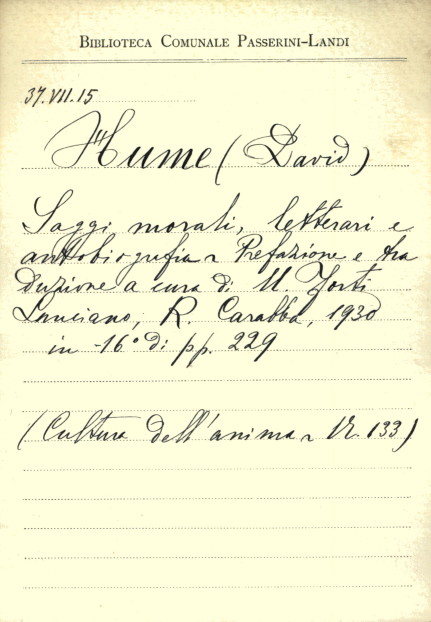 BIBLIOTECA COMUNALE PASSERINI-LANDI
37.VII.15
Hume (David)
Saggi morali, letterari e
autobiografia ~ Prefazione e tra
duzione a cura di U. Forti
Lanciano, R. Carabba, 1930
in -16° di pp. 229
(Cultura dell'anima ~ N. 133)